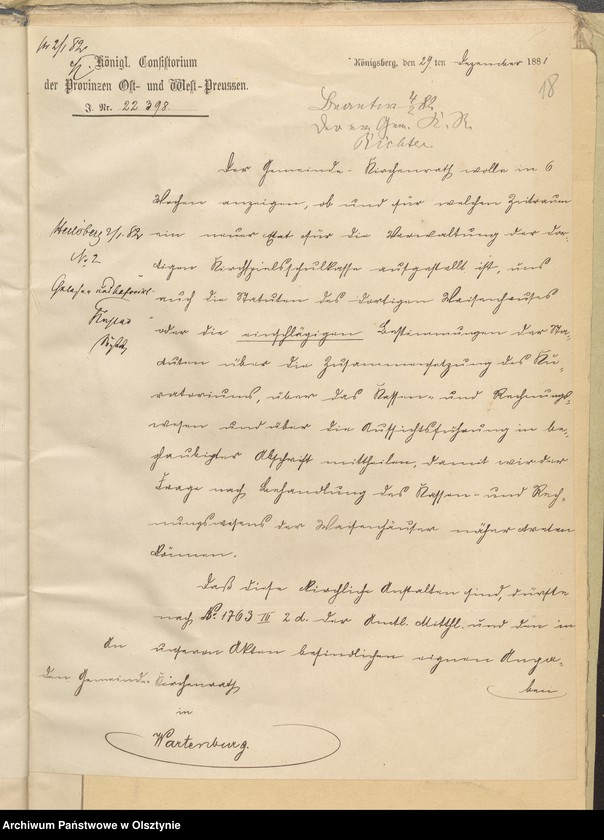 pr 2/1 82
Königl. Consistorium
der Provinzen Ost- und West-Preussen.
J. Nr. 22398.
Königsberg, den 29 ten Dezember 1881
18
Beantw. 4/2 82
K. R.
Richter
Der Gemeinde-Kirchenrath wolle in 6
Wochen anzeigen, ob und für welchen Zeitraum
ein neuer Etat für die Verwaltung der dor-
tigen Kirchspielsschulkasse aufgestellt ist, uns
auch die Statuten des dortigen Waisenhauses
oder die einschlägigen Bestimmungen der Sta-
tuten über die Zusammensetzung des Ku-
ratoriums, über das Kassen- und Rechnungs-
wesen und über die Aufsichtsführung in be-
glaubigter Abschrift mittheilen, damit wir der
Frage nach Behandlung des Kassen- und Rech-
nungswesens der Waisenhäuser näher treten
können.
Daß diese kirchliche Anstalten sind, dürfte
nach No. 1763 III 2 d. der Amtl. Mitthl. und den in
unseren Akten befindlichen eignen Anga-
ben
2/1. 82
No. 2
An
den Gemeinde-Kirchenrath
in
Wartenburg.
Archiwum Państwowe w Olsztynie